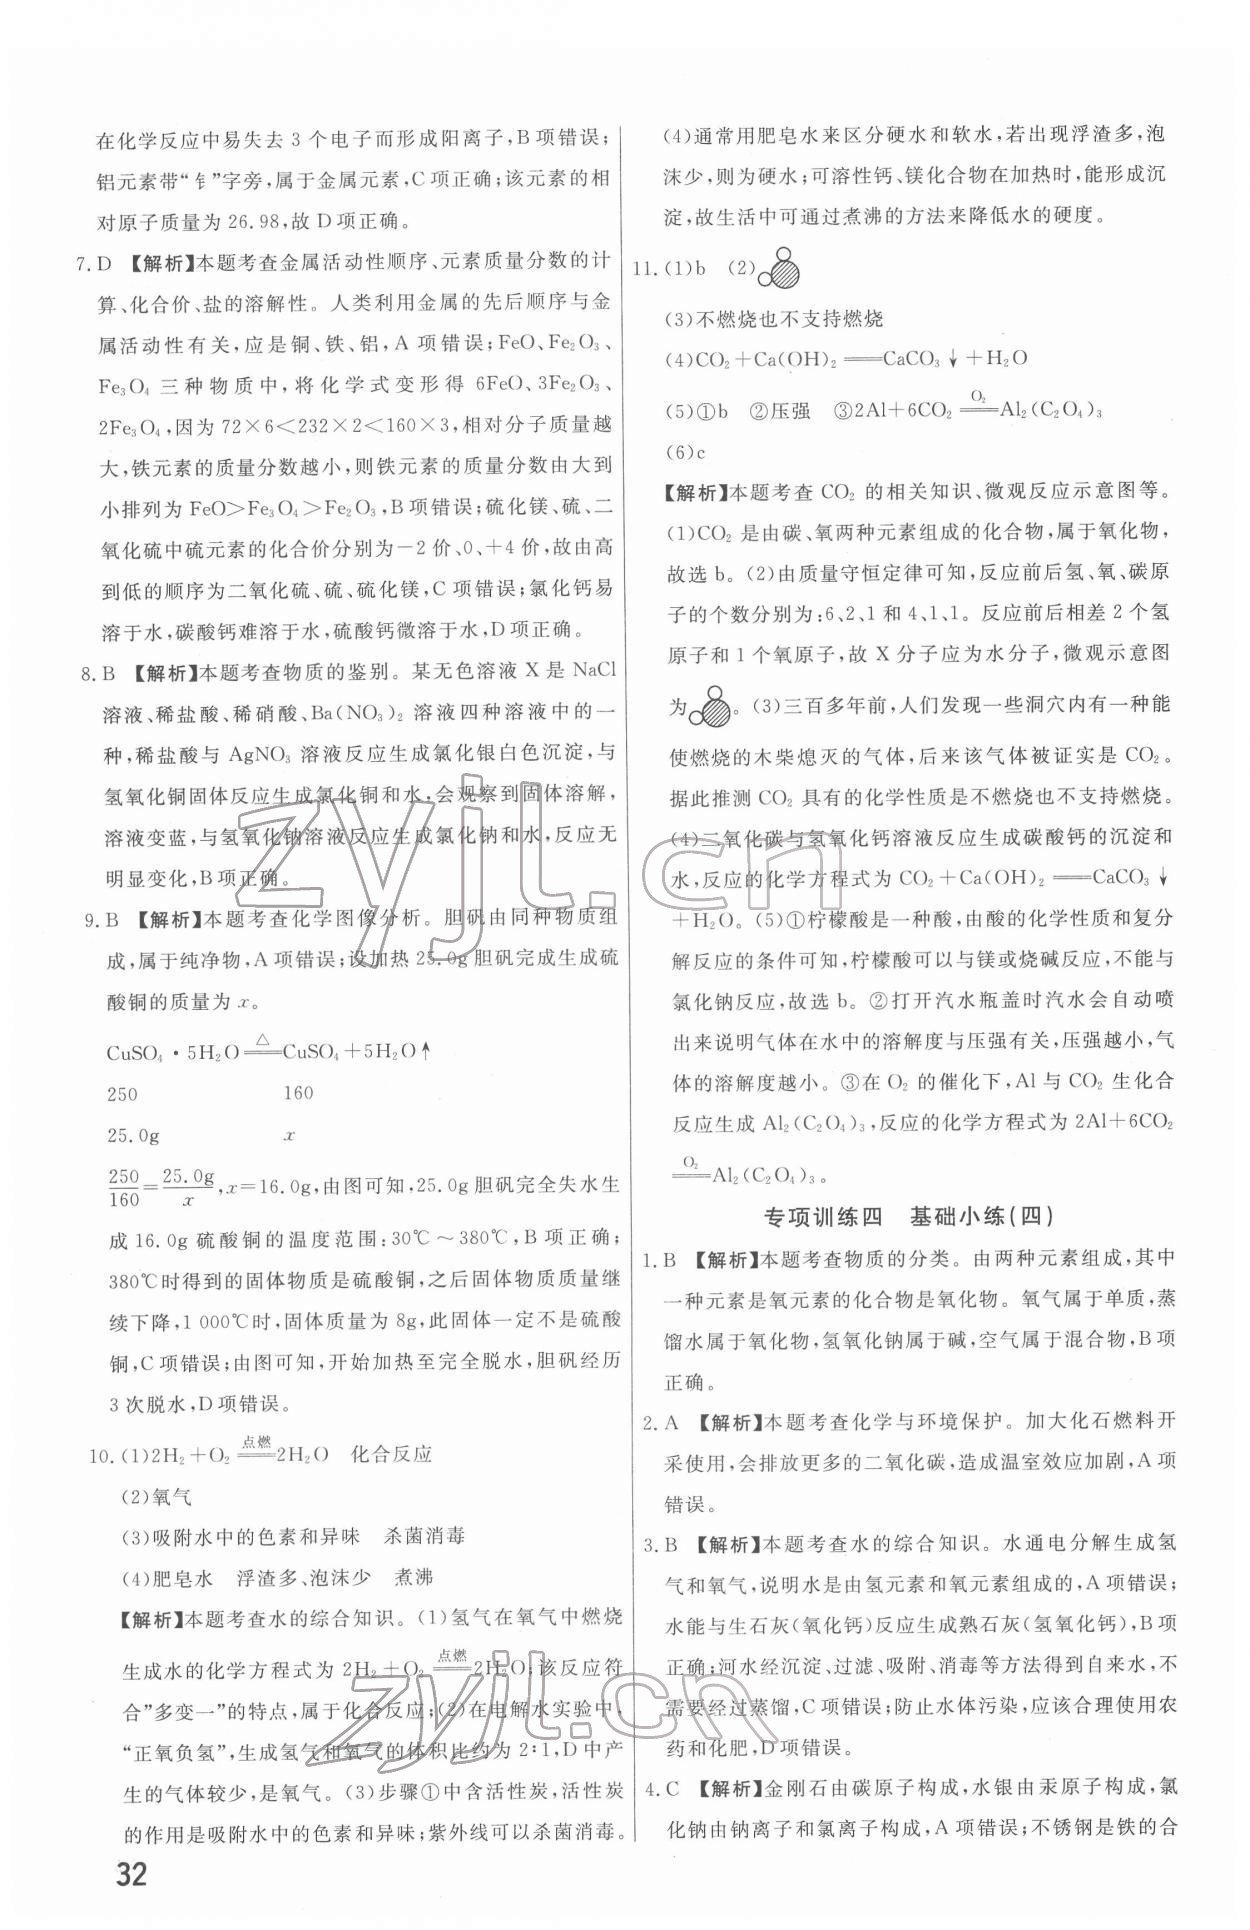 在化学反应中易失去 3 个电子而形成阳离子,B 项错误;
铝元素带“钅”字旁,属于金属元素,C 项正确;该元素的相
对原子质量为 26.98,故 D 项正确。
7. D 【解析】本题考查金属活动性顺序、元素质量分数的计
算、化合价、盐的溶解性。人类利用金属的先后顺序与金
属活动性有关,应是铜、铁、铝,A 项错误;FeO、Fe₂O₃、
Fe₃O₄ 三种物质中,将化学式变形得 6FeO、3Fe₂O₃、
2Fe₃O₄,因为 72×6<232×2<160×3,相对分子质量越
大,铁元素的质量分数越小,则铁元素的质量分数由大到
小排列为 FeO>Fe₃O₄>Fe₂O₃,B 项错误;硫化镁、硫、二
氧化硫中硫元素的化合价分别为-2 价、0、+4 价,故由高
到低的顺序为二氧化硫、硫、硫化镁,C 项错误;氯化钙易
溶于水,碳酸钙难溶于水,硫酸钙微溶于水,D 项正确。
8. B 【解析】本题考查物质的鉴别。某无色溶液 X 是 NaCl
溶液、稀盐酸、稀硝酸、Ba(NO₃)₂ 溶液四种溶液中的一
种,稀盐酸与 AgNO₃ 溶液反应生成氯化银白色沉淀,与
氢氧化铜固体反应生成氯化铜和水,会观察到固体溶解,
溶液变蓝,与氢氧化钠溶液反应生成氯化钠和水,反应无
明显变化,B 项正确。
9. B 【解析】本题考查化学图像分析。胆矾由同种物质组
成,属于纯净物,A 项错误;设加热 25.0g 胆矾完成生成硫
酸铜的质量为 x。
CuSO₄·5H₂O =△= CuSO₄+5H₂O↑
250 160
25.0g x
250/160=25.0g/x,x=16.0g,由图可知,25.0g 胆矾完全失水生
成 16.0g 硫酸铜的温度范围:30℃～380℃,B 项正确;
380℃时得到的固体物质是硫酸铜,之后固体物质质量继
续下降,1 000℃时,固体质量为 8g,此固体一定不是硫酸
铜,C 项错误;由图可知,开始加热至完全脱水,胆矾经历
3 次脱水,D 项错误。
10. (1)2H₂+O₂ =点燃= 2H₂O 化合反应
(2)氧气
(3)吸附水中的色素和异味 杀菌消毒
(4)肥皂水 浮渣多、泡沫少 煮沸
【解析】本题考查水的综合知识。(1)氢气在氧气中燃烧
生成水的化学方程式为 2H₂+O₂ =点燃= 2H₂O;该反应符
合“多变一”的特点,属于化合反应;(2)在电解水实验中,
“正氧负氢”,生成氢气和氧气的体积比约为 2∶1,D 中产
生的气体较少,是氧气。(3)步骤①中含活性炭,活性炭
的作用是吸附水中的色素和异味;紫外线可以杀菌消毒。
(4)通常用肥皂水来区分硬水和软水,若出现浮渣多,泡
沫少,则为硬水;可溶性钙、镁化合物在加热时,能形成沉
淀,故生活中可通过煮沸的方法来降低水的硬度。
11. (1)b (2)
(3)不燃烧也不支持燃烧
(4)CO₂+Ca(OH)₂ == CaCO₃↓+H₂O
(5)①b ②压强 ③2Al+6CO₂ =O₂= Al₂(C₂O₄)₃
(6)c
【解析】本题考查 CO₂ 的相关知识、微观反应示意图等。
(1)CO₂ 是由碳、氧两种元素组成的化合物,属于氧化物,
故选 b。(2)由质量守恒定律可知,反应前后氢、氧、碳原
子的个数分别为:6、2、1 和 4、1、1。反应前后相差 2 个氢
原子和 1 个氧原子,故 X 分子应为水分子,微观示意图
为 。(3)三百多年前,人们发现一些洞穴内有一种能
使燃烧的木柴熄灭的气体,后来该气体被证实是 CO₂。
据此推测 CO₂ 具有的化学性质是不燃烧也不支持燃烧。
(4)二氧化碳与氢氧化钙溶液反应生成碳酸钙的沉淀和
水,反应的化学方程式为 CO₂+Ca(OH)₂ == CaCO₃↓
+H₂O。(5)①柠檬酸是一种酸,由酸的化学性质和复分
解反应的条件可知,柠檬酸可以与镁或烧碱反应,不能与
氯化钠反应,故选 b。②打开汽水瓶盖时汽水会自动喷
出来说明气体在水中的溶解度与压强有关,压强越小,气
体的溶解度越小。③在 O₂ 的催化下,Al 与 CO₂ 生化合
反应生成 Al₂(C₂O₄)₃,反应的化学方程式为 2Al+6CO₂
=O₂= Al₂(C₂O₄)₃。
专项训练四 基础小练(四)
1. B 【解析】本题考查物质的分类。由两种元素组成,其中
一种元素是氧元素的化合物是氧化物。氧气属于单质,蒸
馏水属于氧化物,氢氧化钠属于碱,空气属于混合物,B 项
正确。
2. A 【解析】本题考查化学与环境保护。加大化石燃料开
采使用,会排放更多的二氧化碳,造成温室效应加剧,A 项
错误。
3. B 【解析】本题考查水的综合知识。水通电分解生成氢
气和氧气,说明水是由氢元素和氧元素组成的,A 项错误;
水能与生石灰(氧化钙)反应生成熟石灰(氢氧化钙),B 项
正确;河水经沉淀、过滤、吸附、消毒等方法得到自来水,不
需要经过蒸馏,C 项错误;防止水体污染,应该合理使用农
药和化肥,D 项错误。
4. C 【解析】金刚石由碳原子构成,水银由汞原子构成,氯
化钠由钠离子和氯离子构成,A 项错误;不锈钢是铁的合
32
zyjl.cn
zyjl.cn